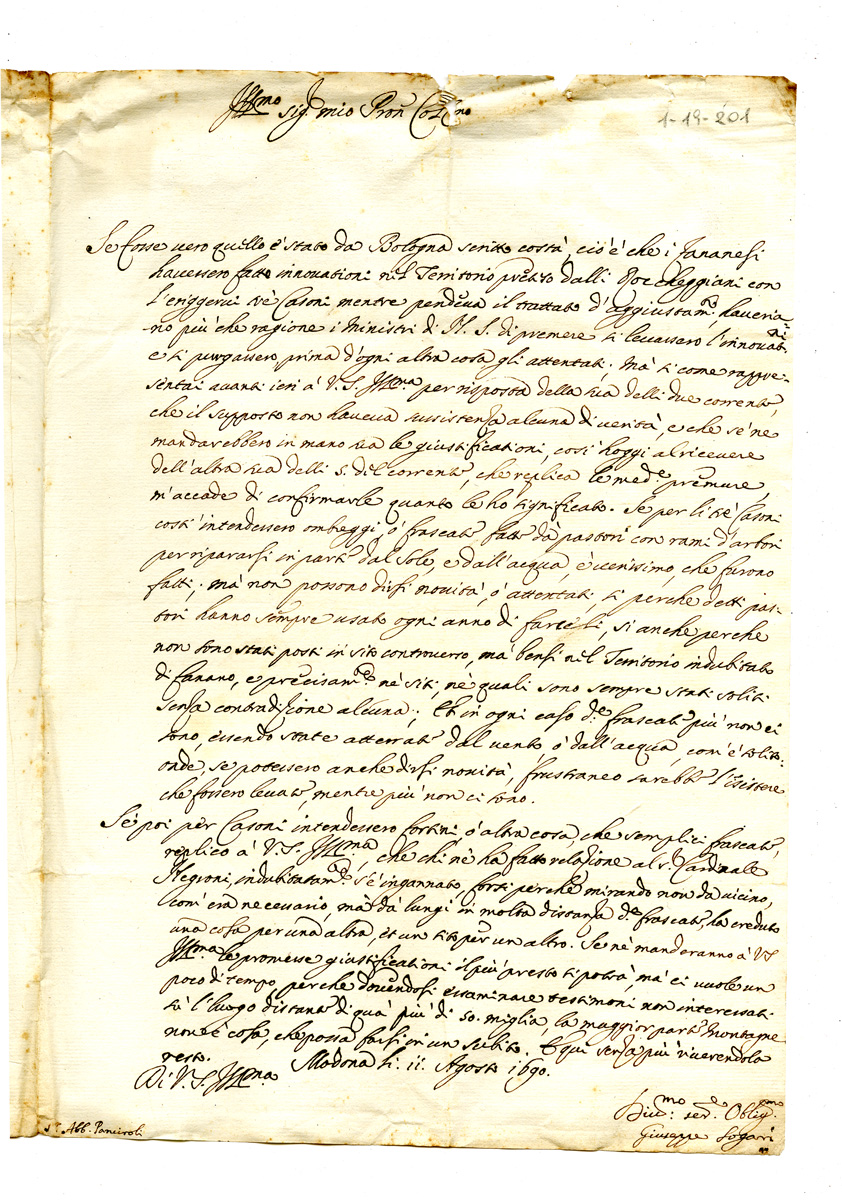 Ill.mo Sig.r mio Pron Col.mo
1-19-201
Se fosse vero quello è stato da Bologna scritto costà, cioè che i Fananesi
havessero fatto innovationi nel Territorio preteso dalli Roccheggiani con
l'eriggervi trè Casoni mentre pendeva il trattato d'aggiustam.to, haveria-
no più che ragione i Ministri di N. S. di premere si levassero l'innovat.ni
e si purgassero prima d'ogni altra cosa gli attentati. Mà si come rappre-
sentai avanti ieri à V. S. Ill.ma per risposta della sua delli due corrente,
che il supposto non haveva sussistenza alcuna di verità, e che se nè
mandarebbero in mano sua le giustificationi, così hoggi al ricevere
dell'altra sua delli 5. del corrente, che replica le med.e premure,
m'accade di confirmarle quanto le hò significato. Se per li trè Casoni
costì intendessero ombreggi, ò frascate fatte dà pastori con rami d'arbori
per ripararsi in parte dal Sole, e dall'acqua, è verissimo, che furono
fatti; mà non possono dirsi novità, ò attentati, sì perche detti pas-
tori hanno sempre usato ogni anno di farceli, si anche perche
non sono stati posti in sito controverso, mà bensi nel Territorio indubitato
di Fanano, e precisam.te nè siti, nè quali sono sempre stati soliti
senza contradizione alcuna; Et in ogni caso d.e frascate più non ci
sono, essendo state atterrate dal vento ò dall'acqua, com'è solito:
onde, se potessero anche dirsi novità, frustraneo sarebbe l'insistere
che fossero levate, mentre più non ci sono.
Sè poi per Casoni intendessero fortini, ò altra cosa, che semplici frascate,
replico à V. S. Ill.ma, che chi nè hà fatto relazione al S.r Cardinale
Negroni, indubitatam.te s'è ingannato, forsi perche mirando non da vicino,
com'era necessario, mà dà lungi in molta distanza d.e frascate, hà creduto
una cosa per una altra, et un sito per un altro. Se nè manderanno à V.S.
Ill.ma le promesse giustificationi il più presto si potrà, mà ci vuole un
poco di tempo, perche dovendosi essaminare testimoni non interessati
sù l'luogo distante di quà più di 50. miglia, la maggior parte montagne
non è cosa, che possa farsi in un subito. E qui senza più riverendola
resto.
Di V. S. Ill.ma Modona li. 11. Agosto 1690.
S.r Abb. Panciroli
Div.mo ser.e Oblig.mo
Giuseppe